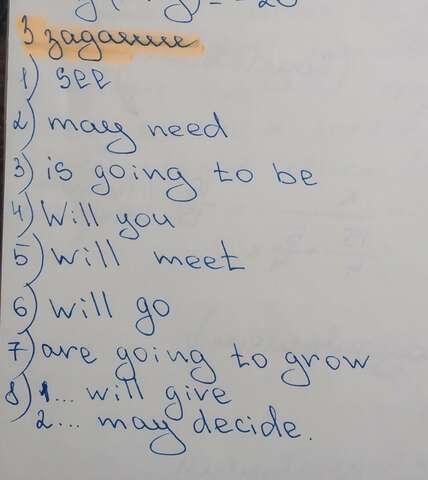 3 задание
1) see
2) may need
3) is going to be
4) Will you
5) will meet
6) will go
7) are going to grow
8) 1... will give
2... may decide.